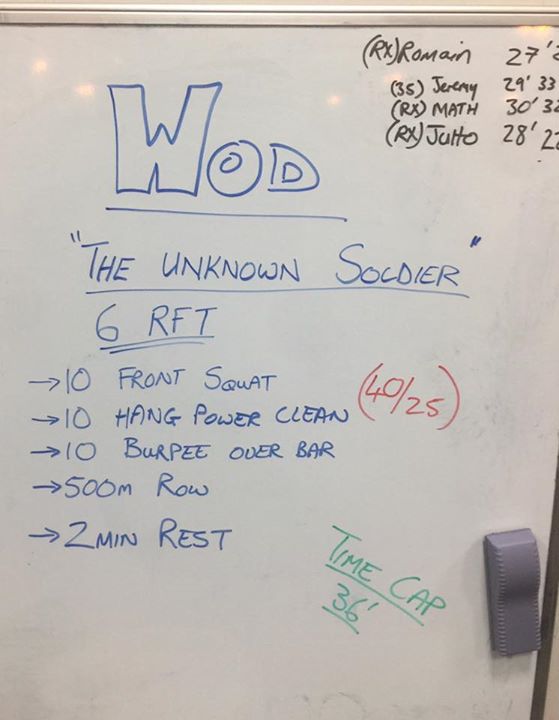 (RX) Romain 27'
(35) Jeremy 29' 33
(RX) MATH 30' 32
(RX) Julto 28' 22
WOD
"THE UNKNOWN SOLDIER"
6 RFT
→10 FRONT SQUAT
→10 HANG POWER CLEAN (40/25)
→10 BURPEE OVER BAR
→500m ROW
→2 MIN REST
TIME CAP
36'